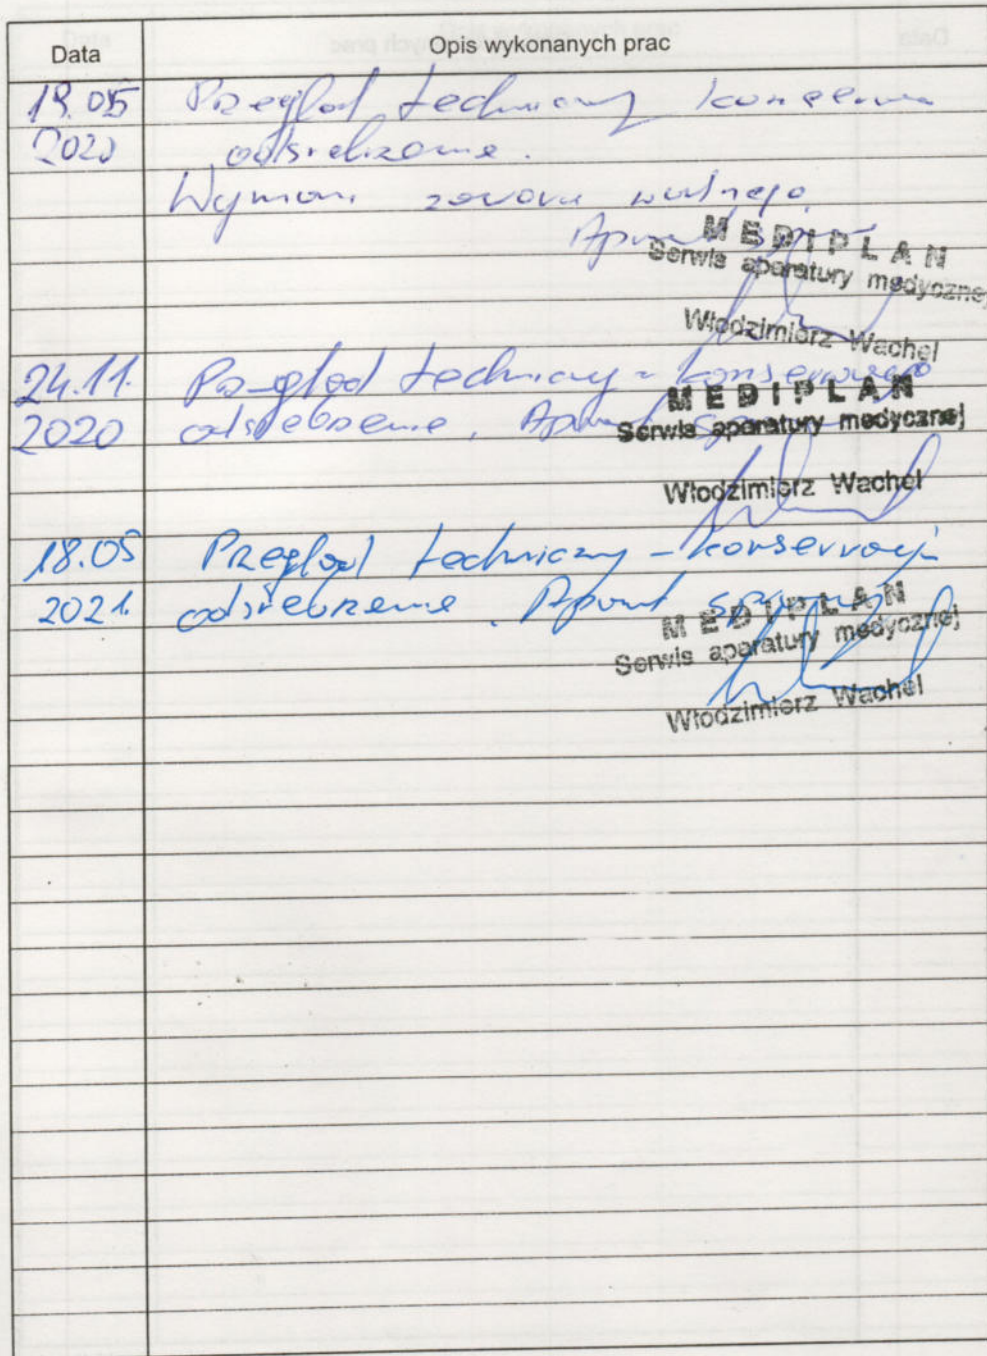 Data Opis wykonanych prac
19.05 Przegląd techniczny konserwa
2020 odsrebrzenie.
Wymiana zaworu wodnego
Aparat
MEDIPLAN
Serwis aparatury medycznej
Włodzimierz Wachel
24.11. Przegląd techniczny - konserwacja
2020 odsrebrzenie. Aparat
MEDIPLAN
Serwis aparatury medycznej
Włodzimierz Wachel
18.05 Przegląd techniczny - konserwacja
2021. odsrebrzenie. Aparat sprawny
MEDIPLAN
Serwis aparatury medycznej
Włodzimierz Wachel